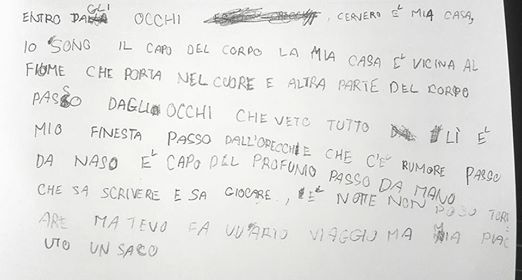 ENTRO DAGLI OCCHI , CERVERO E' MIA CASA,
IO SONO IL CAPO DEL CORPO LA MIA CASA E' VICINA AL
FIUME CHE PORTA NEL CUORE E ALTRA PARTE DEL CORPO
PASSO DAGLI OCCHI CHE VETO TUTTO LÌ E'
MIO FINESTA PASSO DALL'ORECCHIE CHE C'E' RUMORE PASSO
DA NASO E' CAPO DEL PROFUMO PASSO DA MANO
CHE SA SCRIVERE E SA GIOCARE., E' NOTTE NON POSO TORN
ARE MA TEVO FA UN'ARIO VIAGGIO MA MIA PIAC
UTO UN SACO